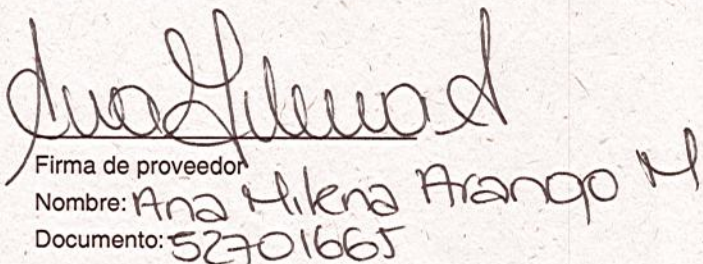 Ana Milena A
Firma de proveedor
Nombre: Ana Milena Arango M
Documento: 52701665